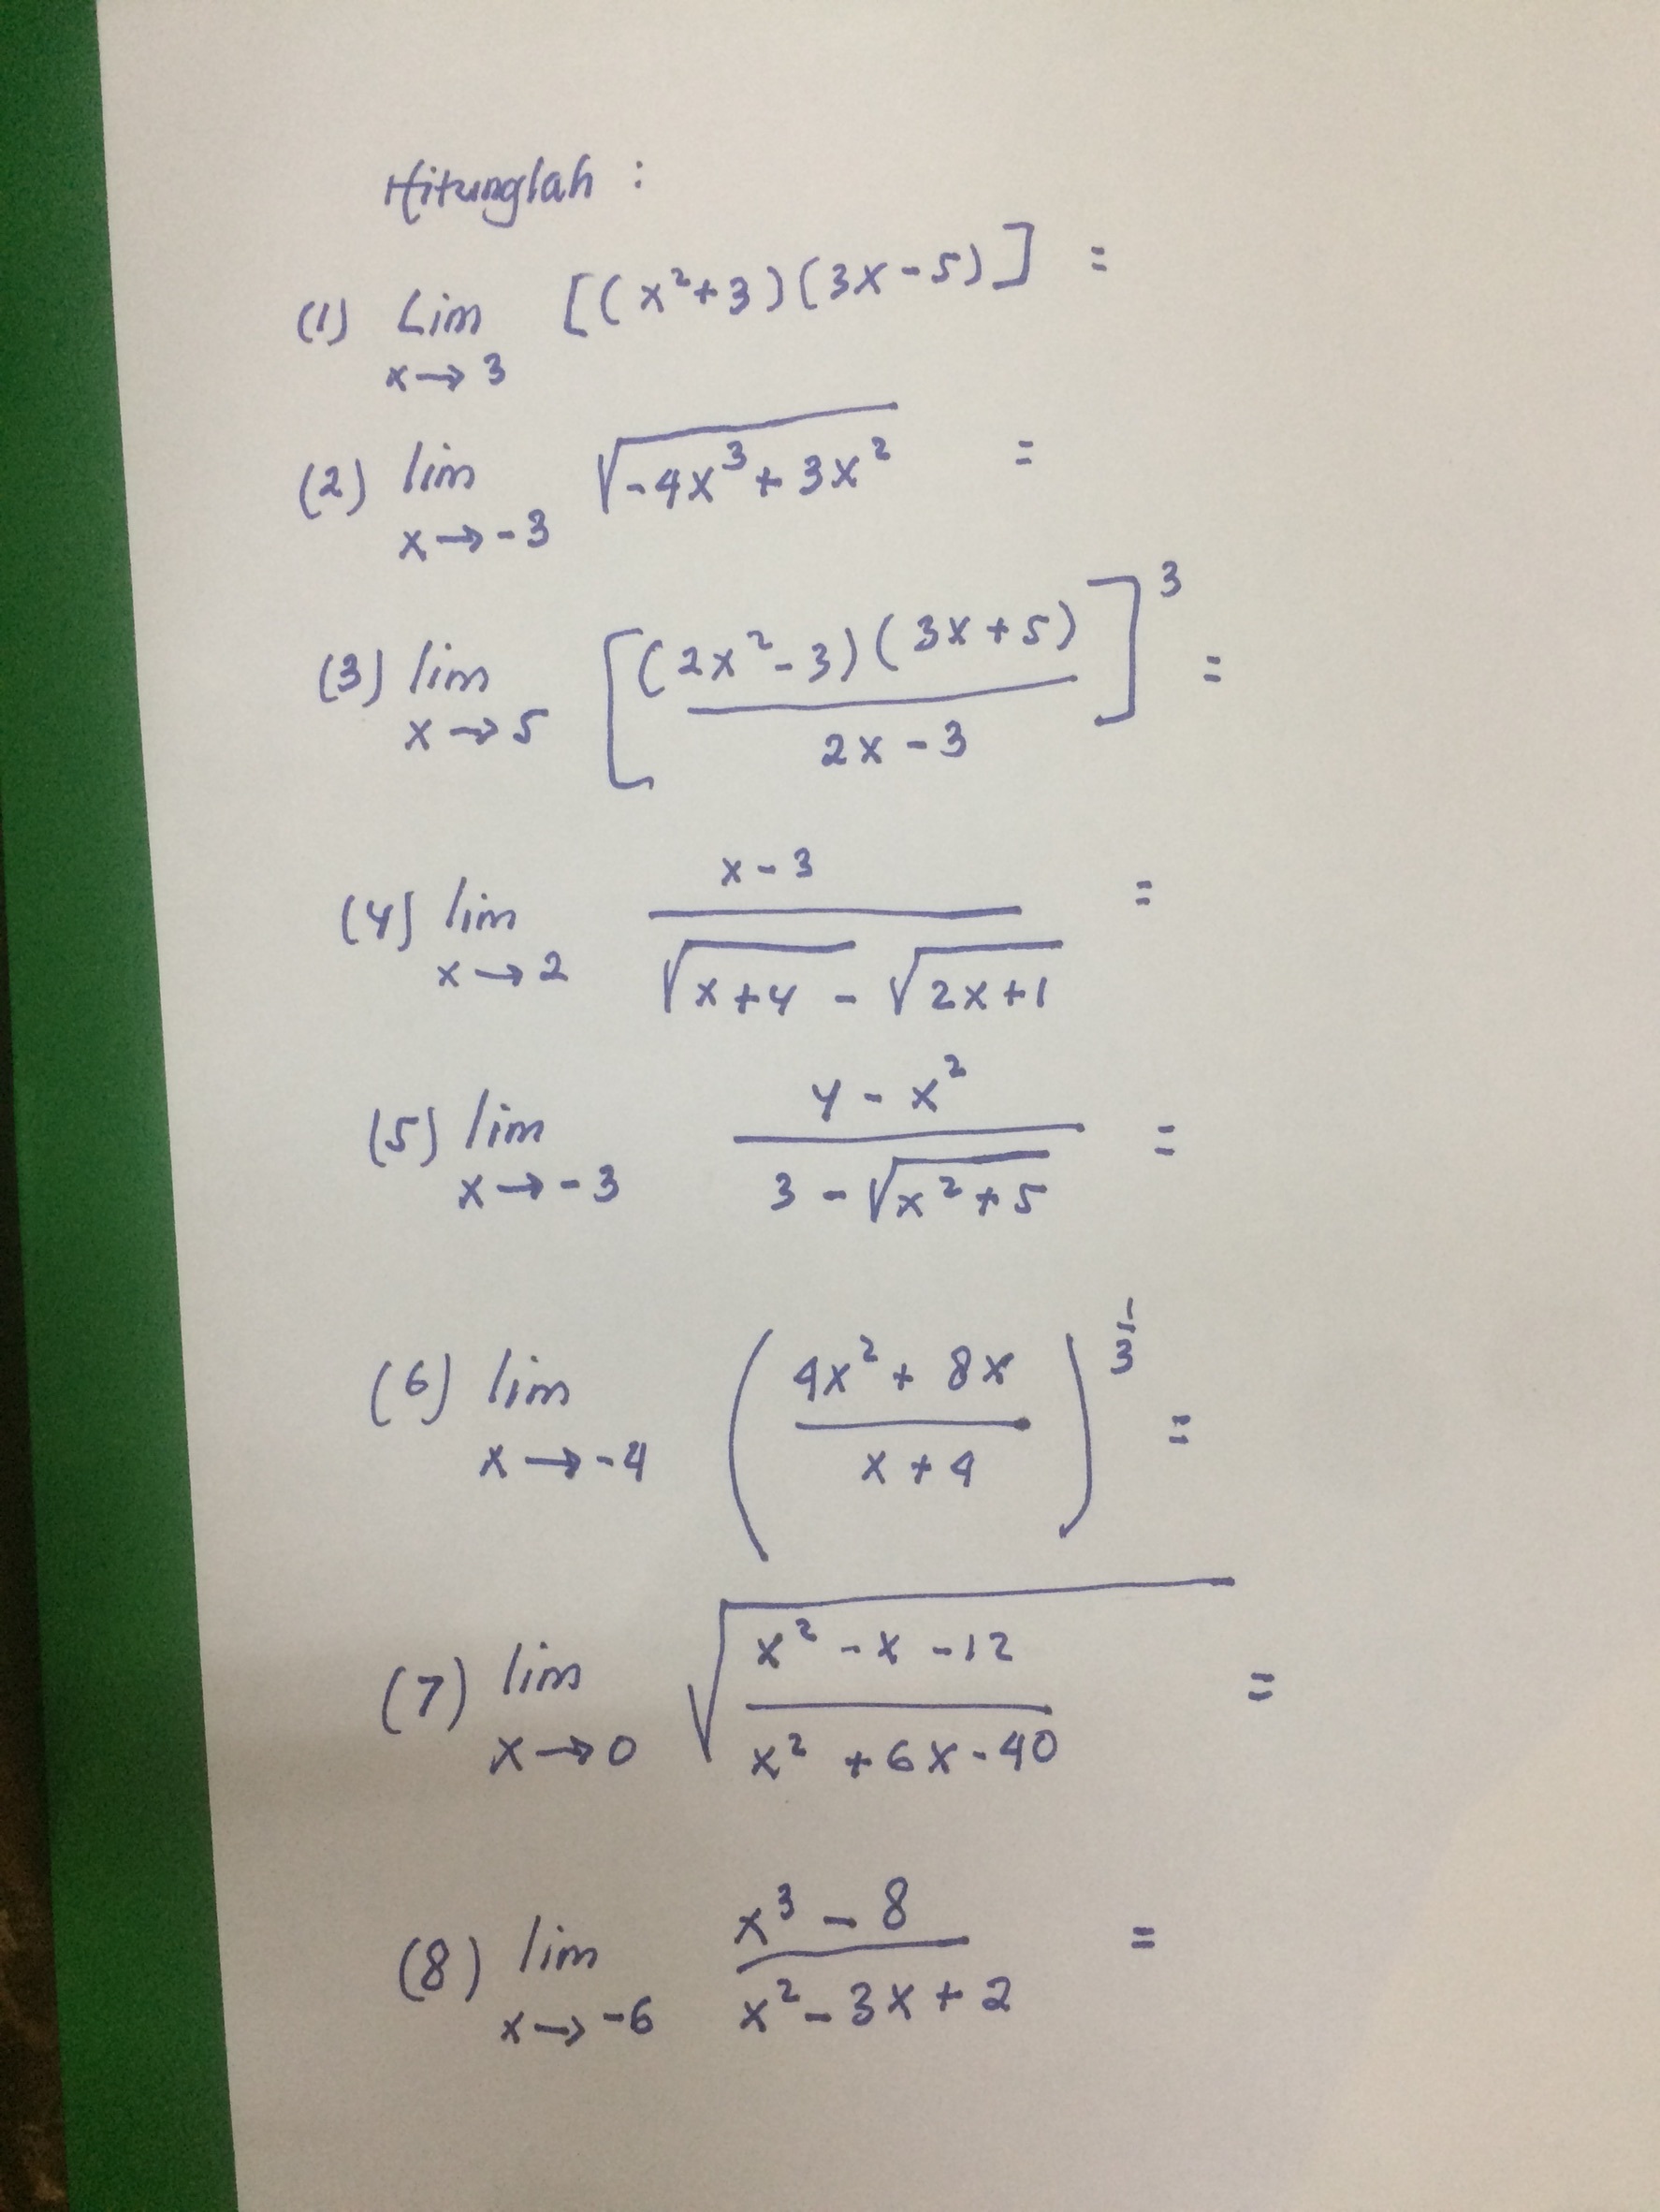 Hitunglah :
(1) Lim x→3 [(x²+3)(3x-5)] =
(2) lim x→-3 √(-4x³+3x²) =
(3) lim x→5 [(2x²-3)(3x+5) / 2x-3]³ =
(4) lim x→2 x-3 / √(x+4) - √(2x+1) =
(5) lim x→-3 4-x² / 3-√(x²+5) =
(6) lim x→-4 (4x²+8x / x+4)^(1/3) =
(7) lim x→0 √(x²-x-12 / x²+6x-40) =
(8) lim x→-6 x³-8 / x²-3x+2 =